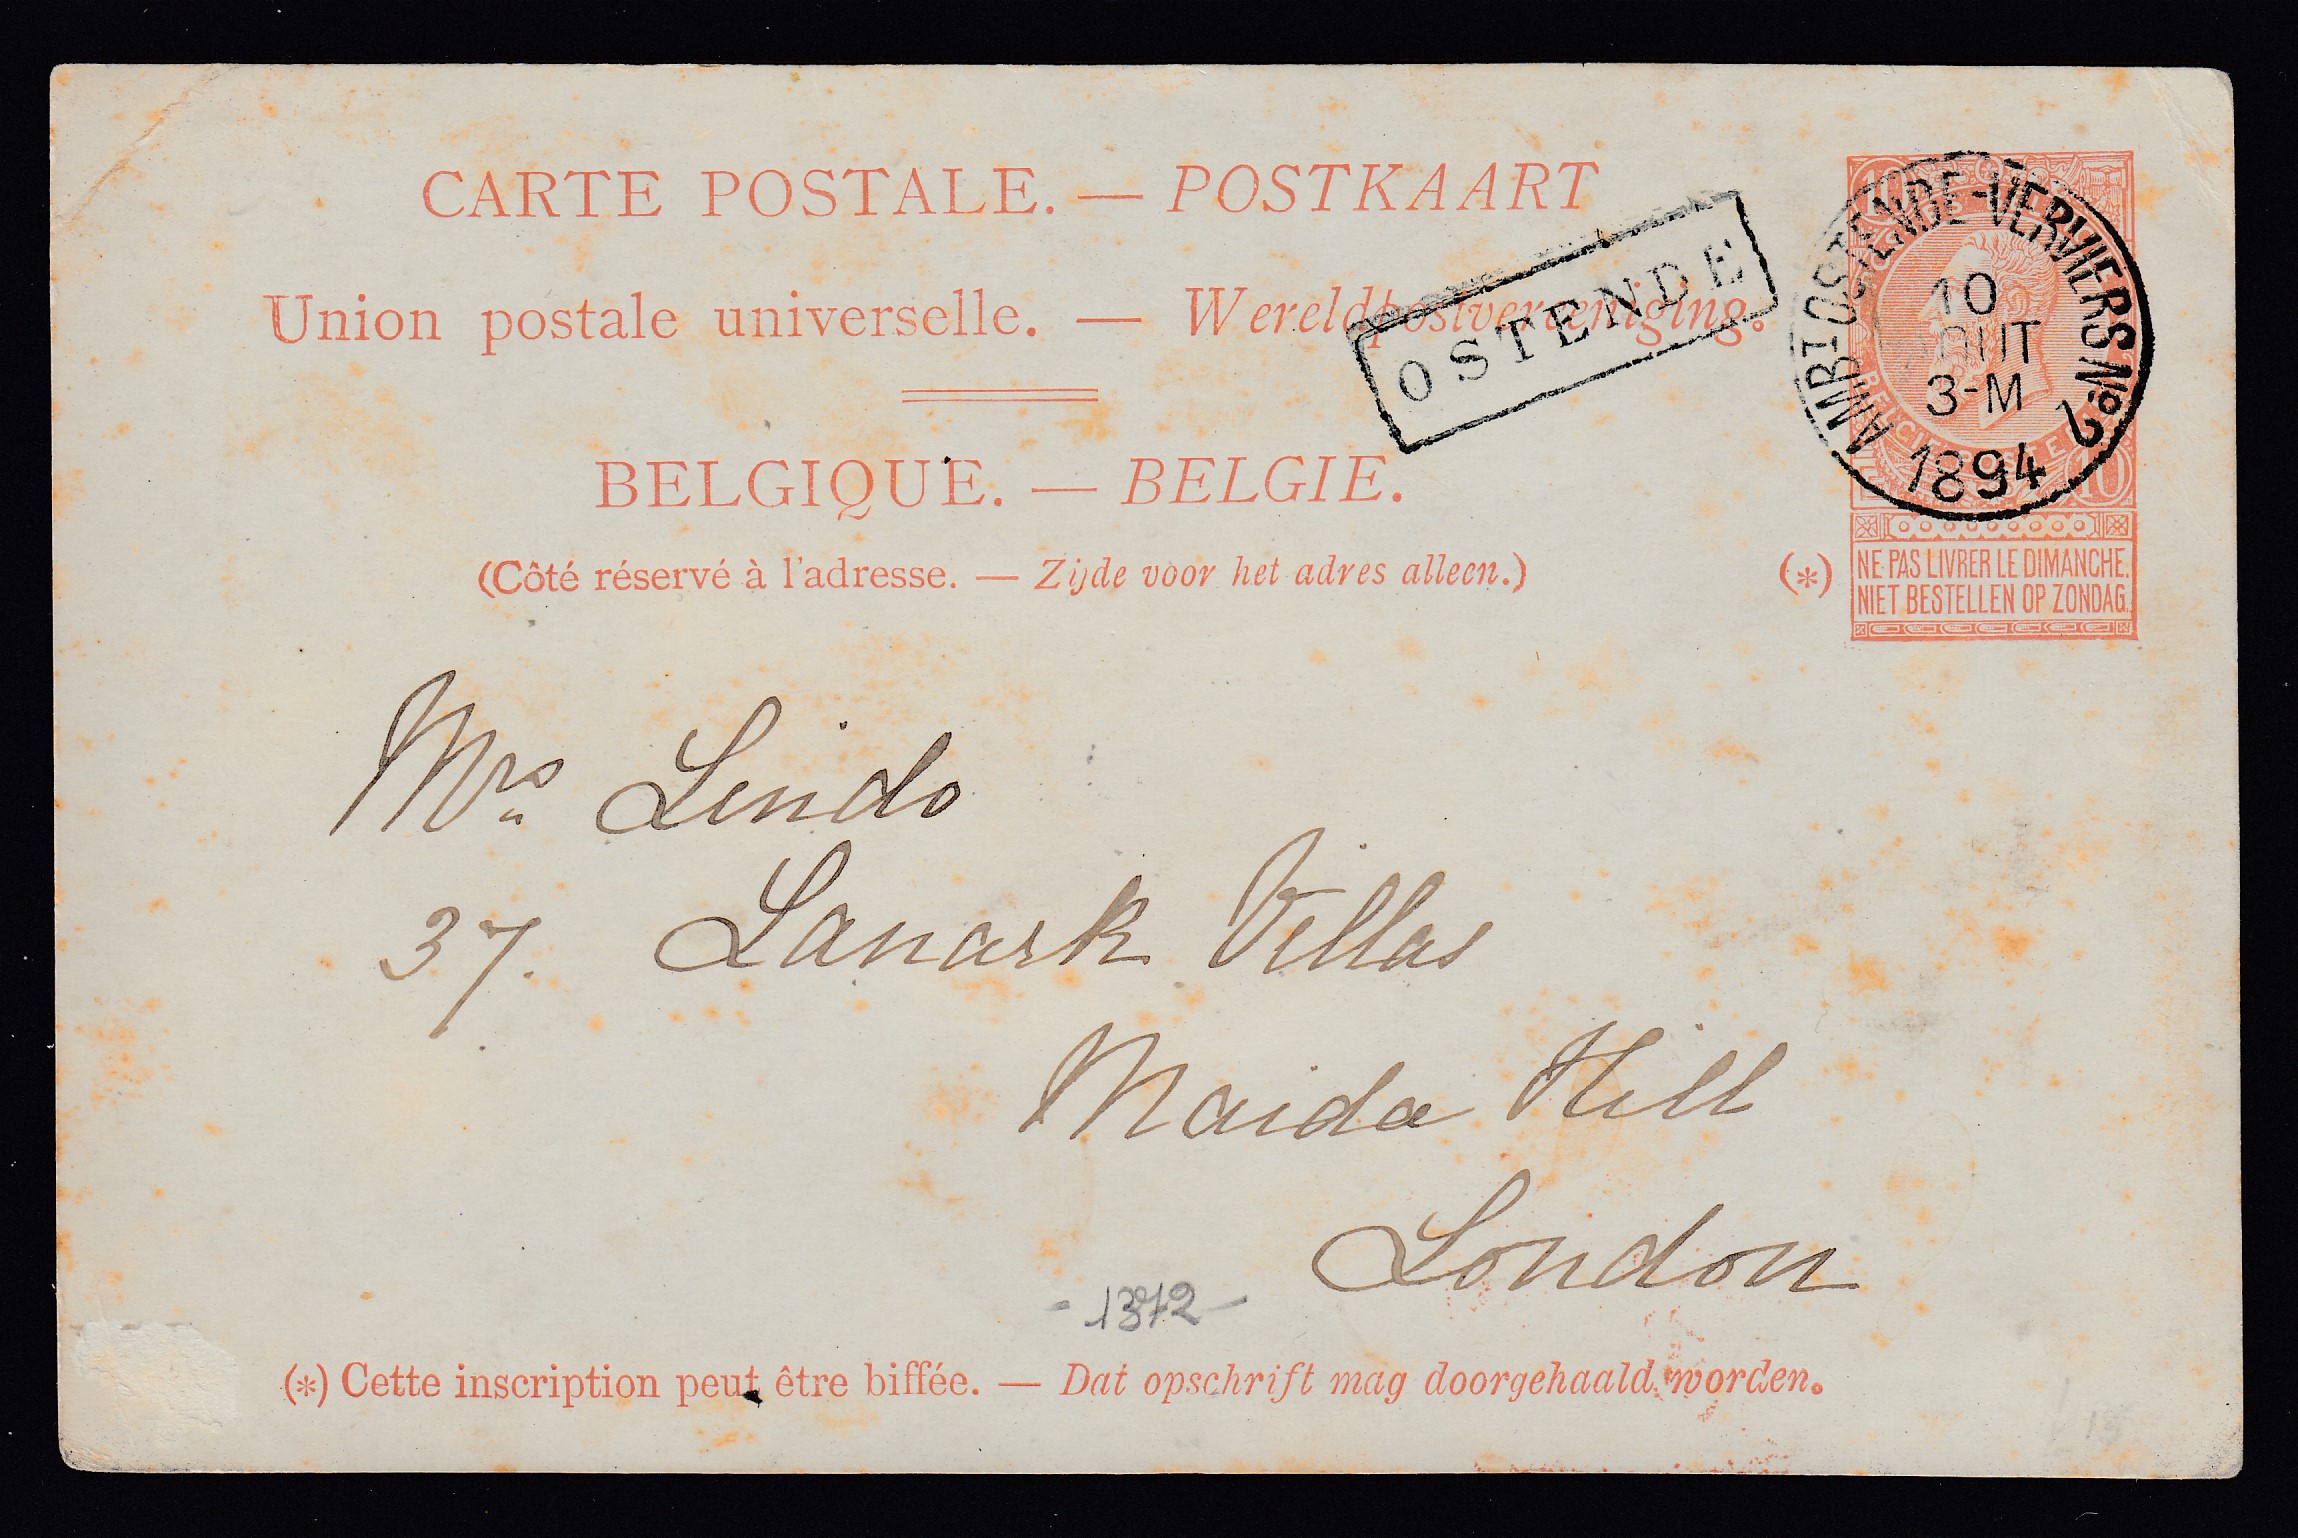 CARTE POSTALE. — POSTKAART
Union postale universelle. — Wereldpostvereeniging.
BELGIQUE. — BELGIE.
(Côté réservé à l'adresse. — Zijde voor het adres alleen.)
OSTENDE
AMBt OSTENDE-VERVIERS No 2
10
AOUT
3-M
1894
10
(*) NE PAS LIVRER LE DIMANCHE.
NIET BESTELLEN OP ZONDAG.
Mrs Lindo
37. Lanark Villas
Maida Hill
London
- 1372 -
(*) Cette inscription peut être biffée. — Dat opschrift mag doorgehaald worden.